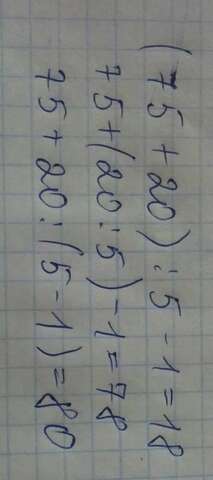 (75 + 20) : 5 - 1 = 18
75 + (20 : 5) - 1 = 78
75 + 20 : (5 - 1) = 80